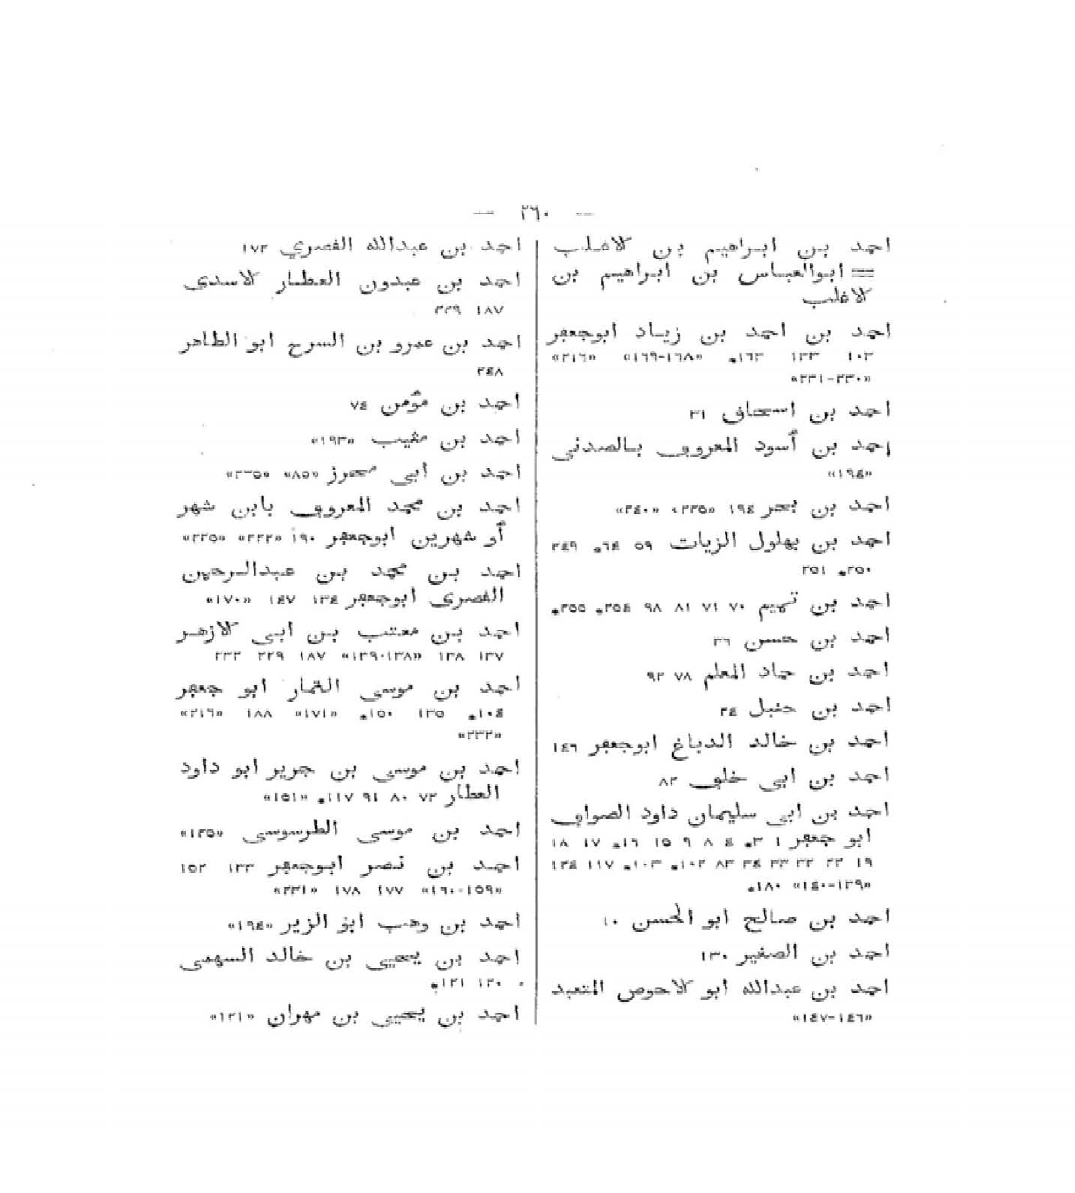 — ٢٦٠ —
احمد بن ابراهيم بن كلاغلب
= ابوالعباس بن ابراهيم بن
كلاغلب
احمد بن احمد بن زياد ابوجعفر
١٠٢ ١٣٣ ١٦٣* «١٦٨-١٦٩» «٢١٦»
«٢٣٠-٢٣١»
احمد بن اسحاق ٣١
احمد بن أسود المعروف بالصدني
«١٩٤»
احمد بن بحر ١٩٤ «٢٣٥» «٢٤٠»
احمد بن بهلول الزيات ٥٩ ٦٤* ٢٤٩
٢٥٠* ٢٥١
احمد بن تميم ٧٠ ٧١ ٨١ ٩٨ ٢٥٤* ٢٥٥*
احمد بن حسن ٣٦
احمد بن حماد المعلم ٧٨ ٩٣
احمد بن حنبل ٣٤
احمد بن خالد الدباغ ابوجعفر ١٤٦
احمد بن ابى خلف ٨٣
احمد بن ابى سليمان داود الصواف
ابو جعفر ١ ٣* ٤ ٨ ٩ ١٥ ١٦* ١٧ ١٨
١٩ ٢٢ ٢٣ ٣٣ ٣٤ ٨٣ ١٠٢* ١٠٣* ١١٧ ١٣٤
«١٣٩-١٤٠» ١٨٠*
احمد بن صالح ابو الحسن ١٠
احمد بن الصغير ١٣٠
احمد بن عبدالله ابو كلاحوص المتعبد
«١٤٦-١٤٧»
احمد بن عبدالله القصري ١٧٣
احمد بن عبدون العطار كلاسدى
١٨٧ ٢٣٩
احمد بن عمرو بن السرح ابو الطاهر
٢٤٨
احمد بن مؤمن ٧٤
احمد بن مغيب «١٩٣»
احمد بن أبى محرز «٨٥» «٢٣٥»
احمد بن محمد المعروف بابن شهر
أو شهرين ابوجعفر ١٩٠ «٢٢٢» «٢٢٥»
احمد بن محمد بن عبدالرحمن
القصرى ابوجعفر ١٣٤ ١٤٧ «١٧٠»
احمد بن معتب بن ابى كلازهر
١٣٧ ١٣٨ «١٣٨-١٣٩» ١٨٧ ٢٢٩ ٢٣٣
احمد بن موسى التمار ابو جعفر
١٠٤* ١٣٥ ١٥٠* «١٧١» ١٨٨ «٢١٦»
«٢٣٢»
احمد بن موسى بن جرير ابو داود
العطار ٧٣ ٨٠ ٩١ ١١٧* «١٥١»
احمد بن موسى الطرسوسى «١٣٥»
احمد بن نصر ابوجعفر ١٣٣ ١٥٢
«١٥٩-١٦٠» ١٧٧ ١٧٨ «٢٣١»
احمد بن وهب ابو الزير «١٩٤»
احمد بن يحيى بن خالد السهمى
١٢٠ ١٢١*
احمد بن يحيى بن مهران «١٢١»